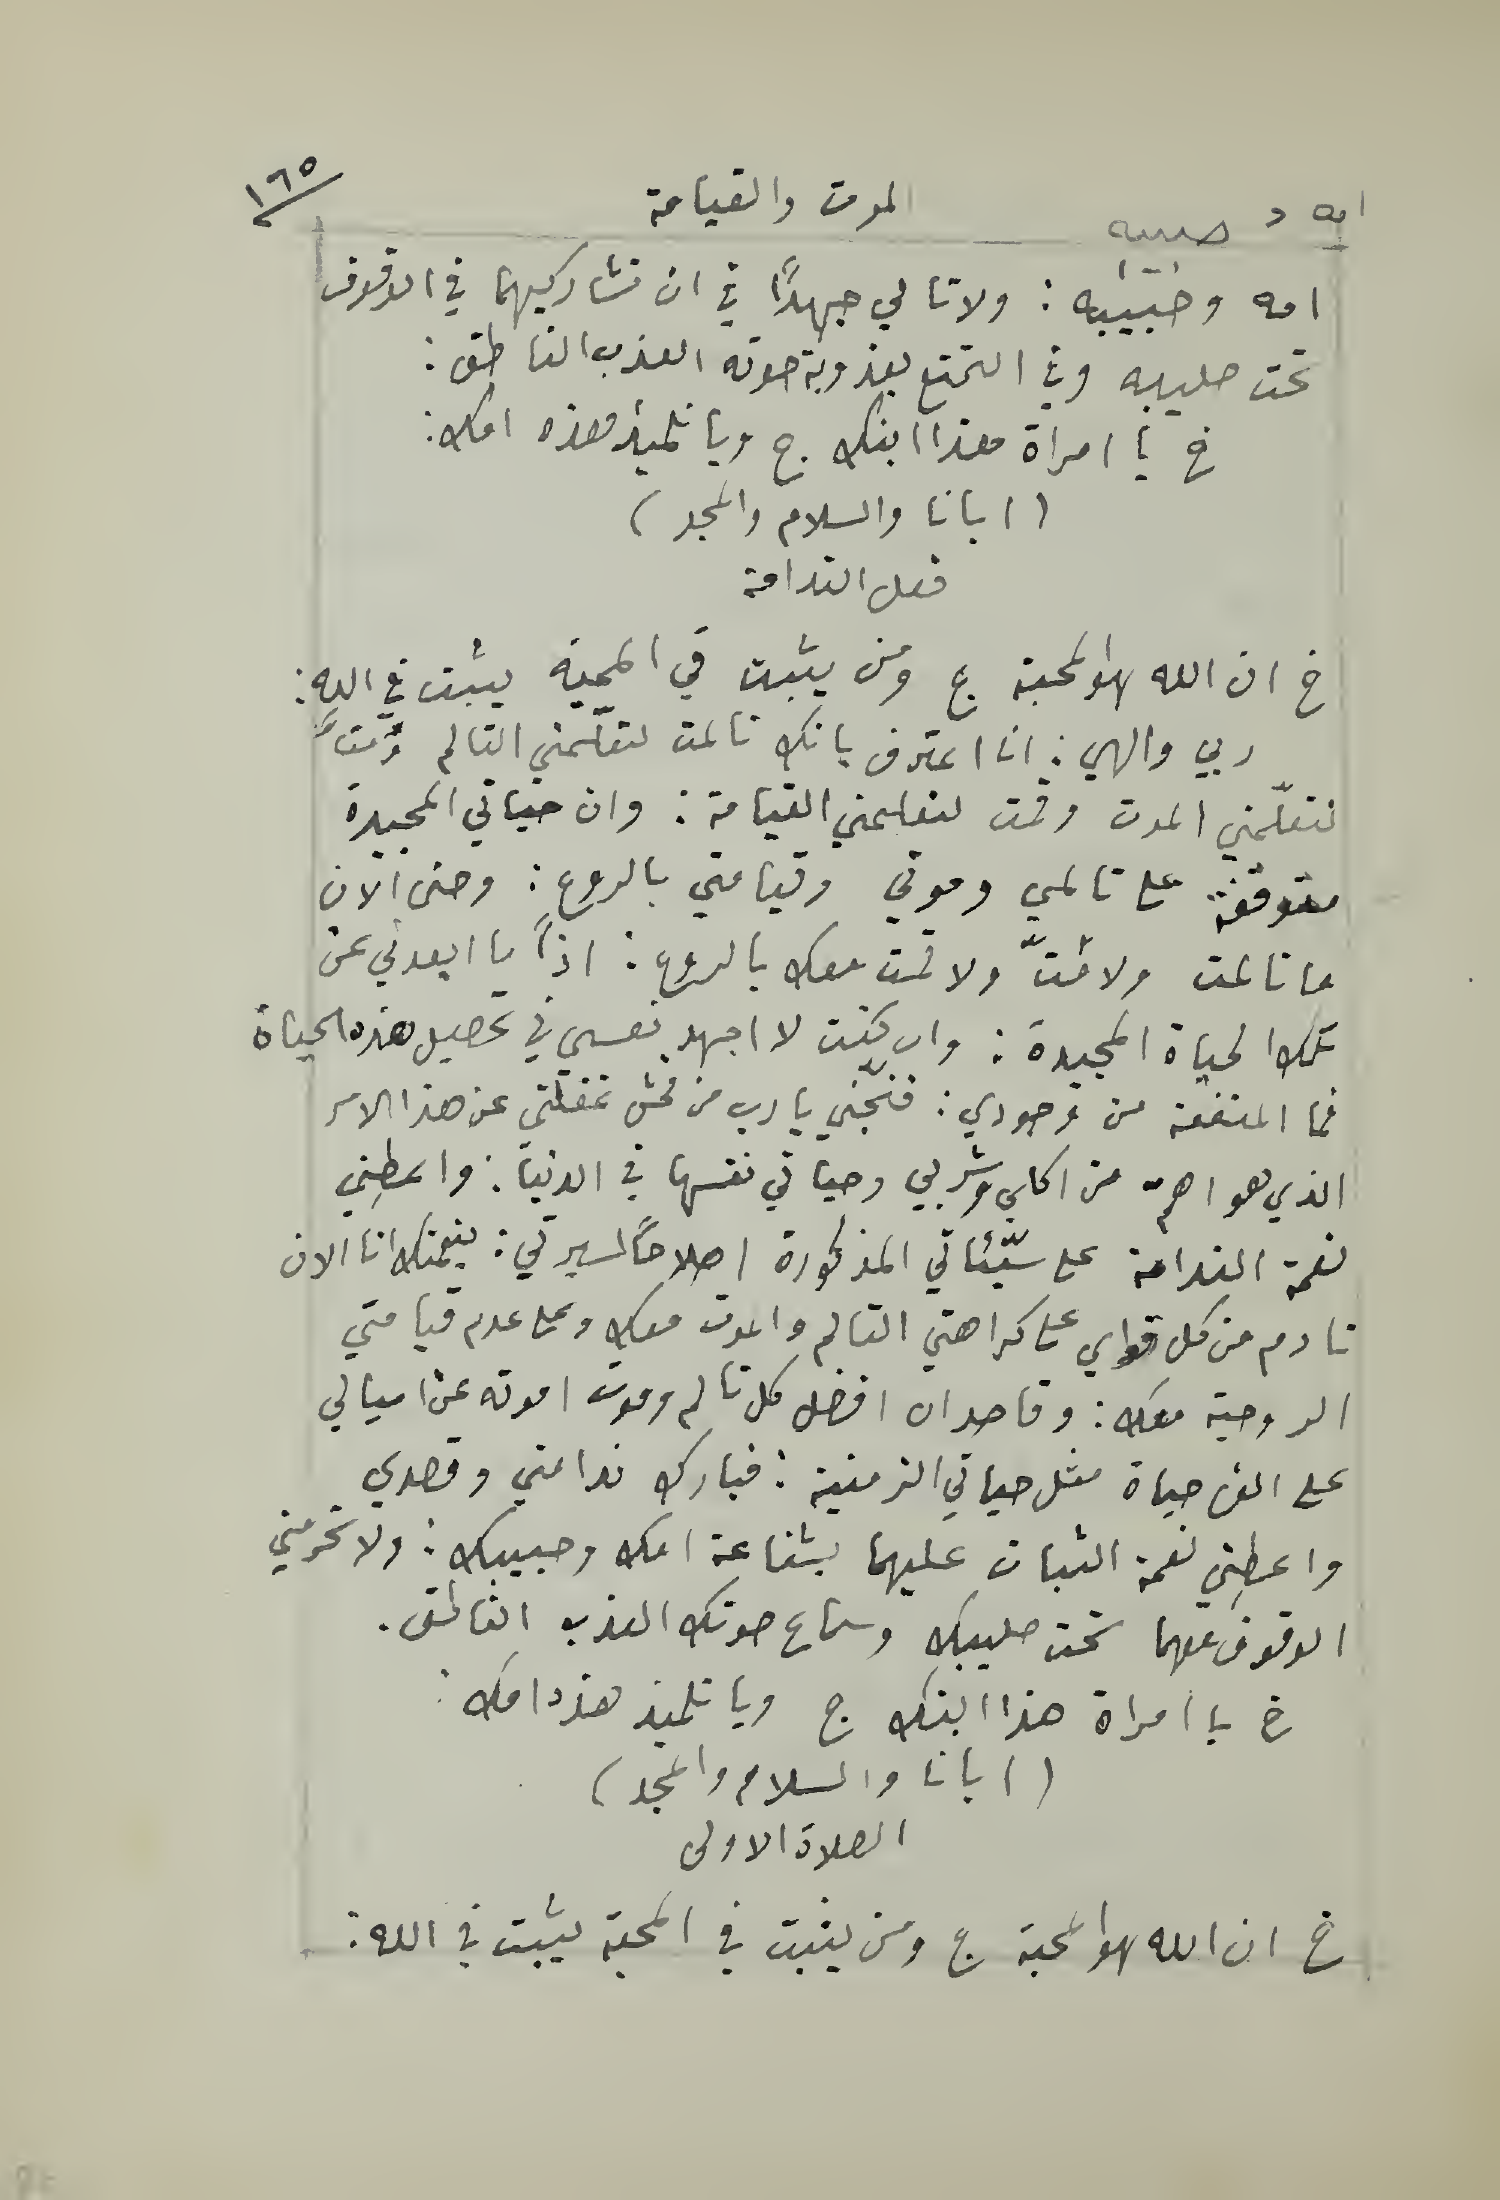 ١٦٥
الموت والقيامة
امه و حبيبه
امه وحبيبه : ولا تالي جهدًا في ان تشاركيهما في الوقوف
تحت صليبه وفي التمتع بعذوبة صوته العذب الناطق :
خ يا امراة هذا ابنك . ج ويا تلميذ هذه امك :
( ابانا والسلام والمجد )
فعل الندامة
خ ان الله هو المحبة ج ومن يثبت في المحبة يثبت في الله :
ربي والهي : انا اعترف بانك تالمت لتعلّمني التالم ومُتَّ
لتعلّمني الموت وقمت لتعلمني القيامة : وان حياتي المجيدة
متوقفة على تالمي وموتي وقيامتي بالروح : وحتى الان
ما تالمت ولا مُتّ ولا قمت معك بالروح : اذاً يا ابعدني عن
تلك الحياة المجيدة : وان كنت لا اجهد نفسي في تحصيل هذه الحياة
فما المنفعة من وجودي : فنجّني يا رب من فحش غفلتي عن هذا الامر
الذي هو اهم من اكلي وشربي وحياتي نفسها في الدنيا : واعطِني
نعمة الندامة على سيّئاتي المذكورة اصلاحًا لسيرتي : بنعمتك انا الان
نادم من كل قواي على كراهتي التالم والموت معك وعلى عدم قيامتي
الروحية معك : وقاصد ان افضل كل تالم وموت اموته عن اميالي
على الف حياة مثل حياتي الزمنية : فبارك ندامتي وقصدي
واعطِني نعمة الثبات عليهما بشفاعة امك وحبيبك : ولا تحرمني
الوقوف معهما تحت صليبك وسماع صوتك العذب الناطق .
خ يا امراة هذا ابنك ج ويا تلميذ هذه امك :
( ابانا والسلام والمجد )
الصلاة الاولى
خ ان الله هو المحبة ج ومن يثبت في المحبة يثبت في الله :